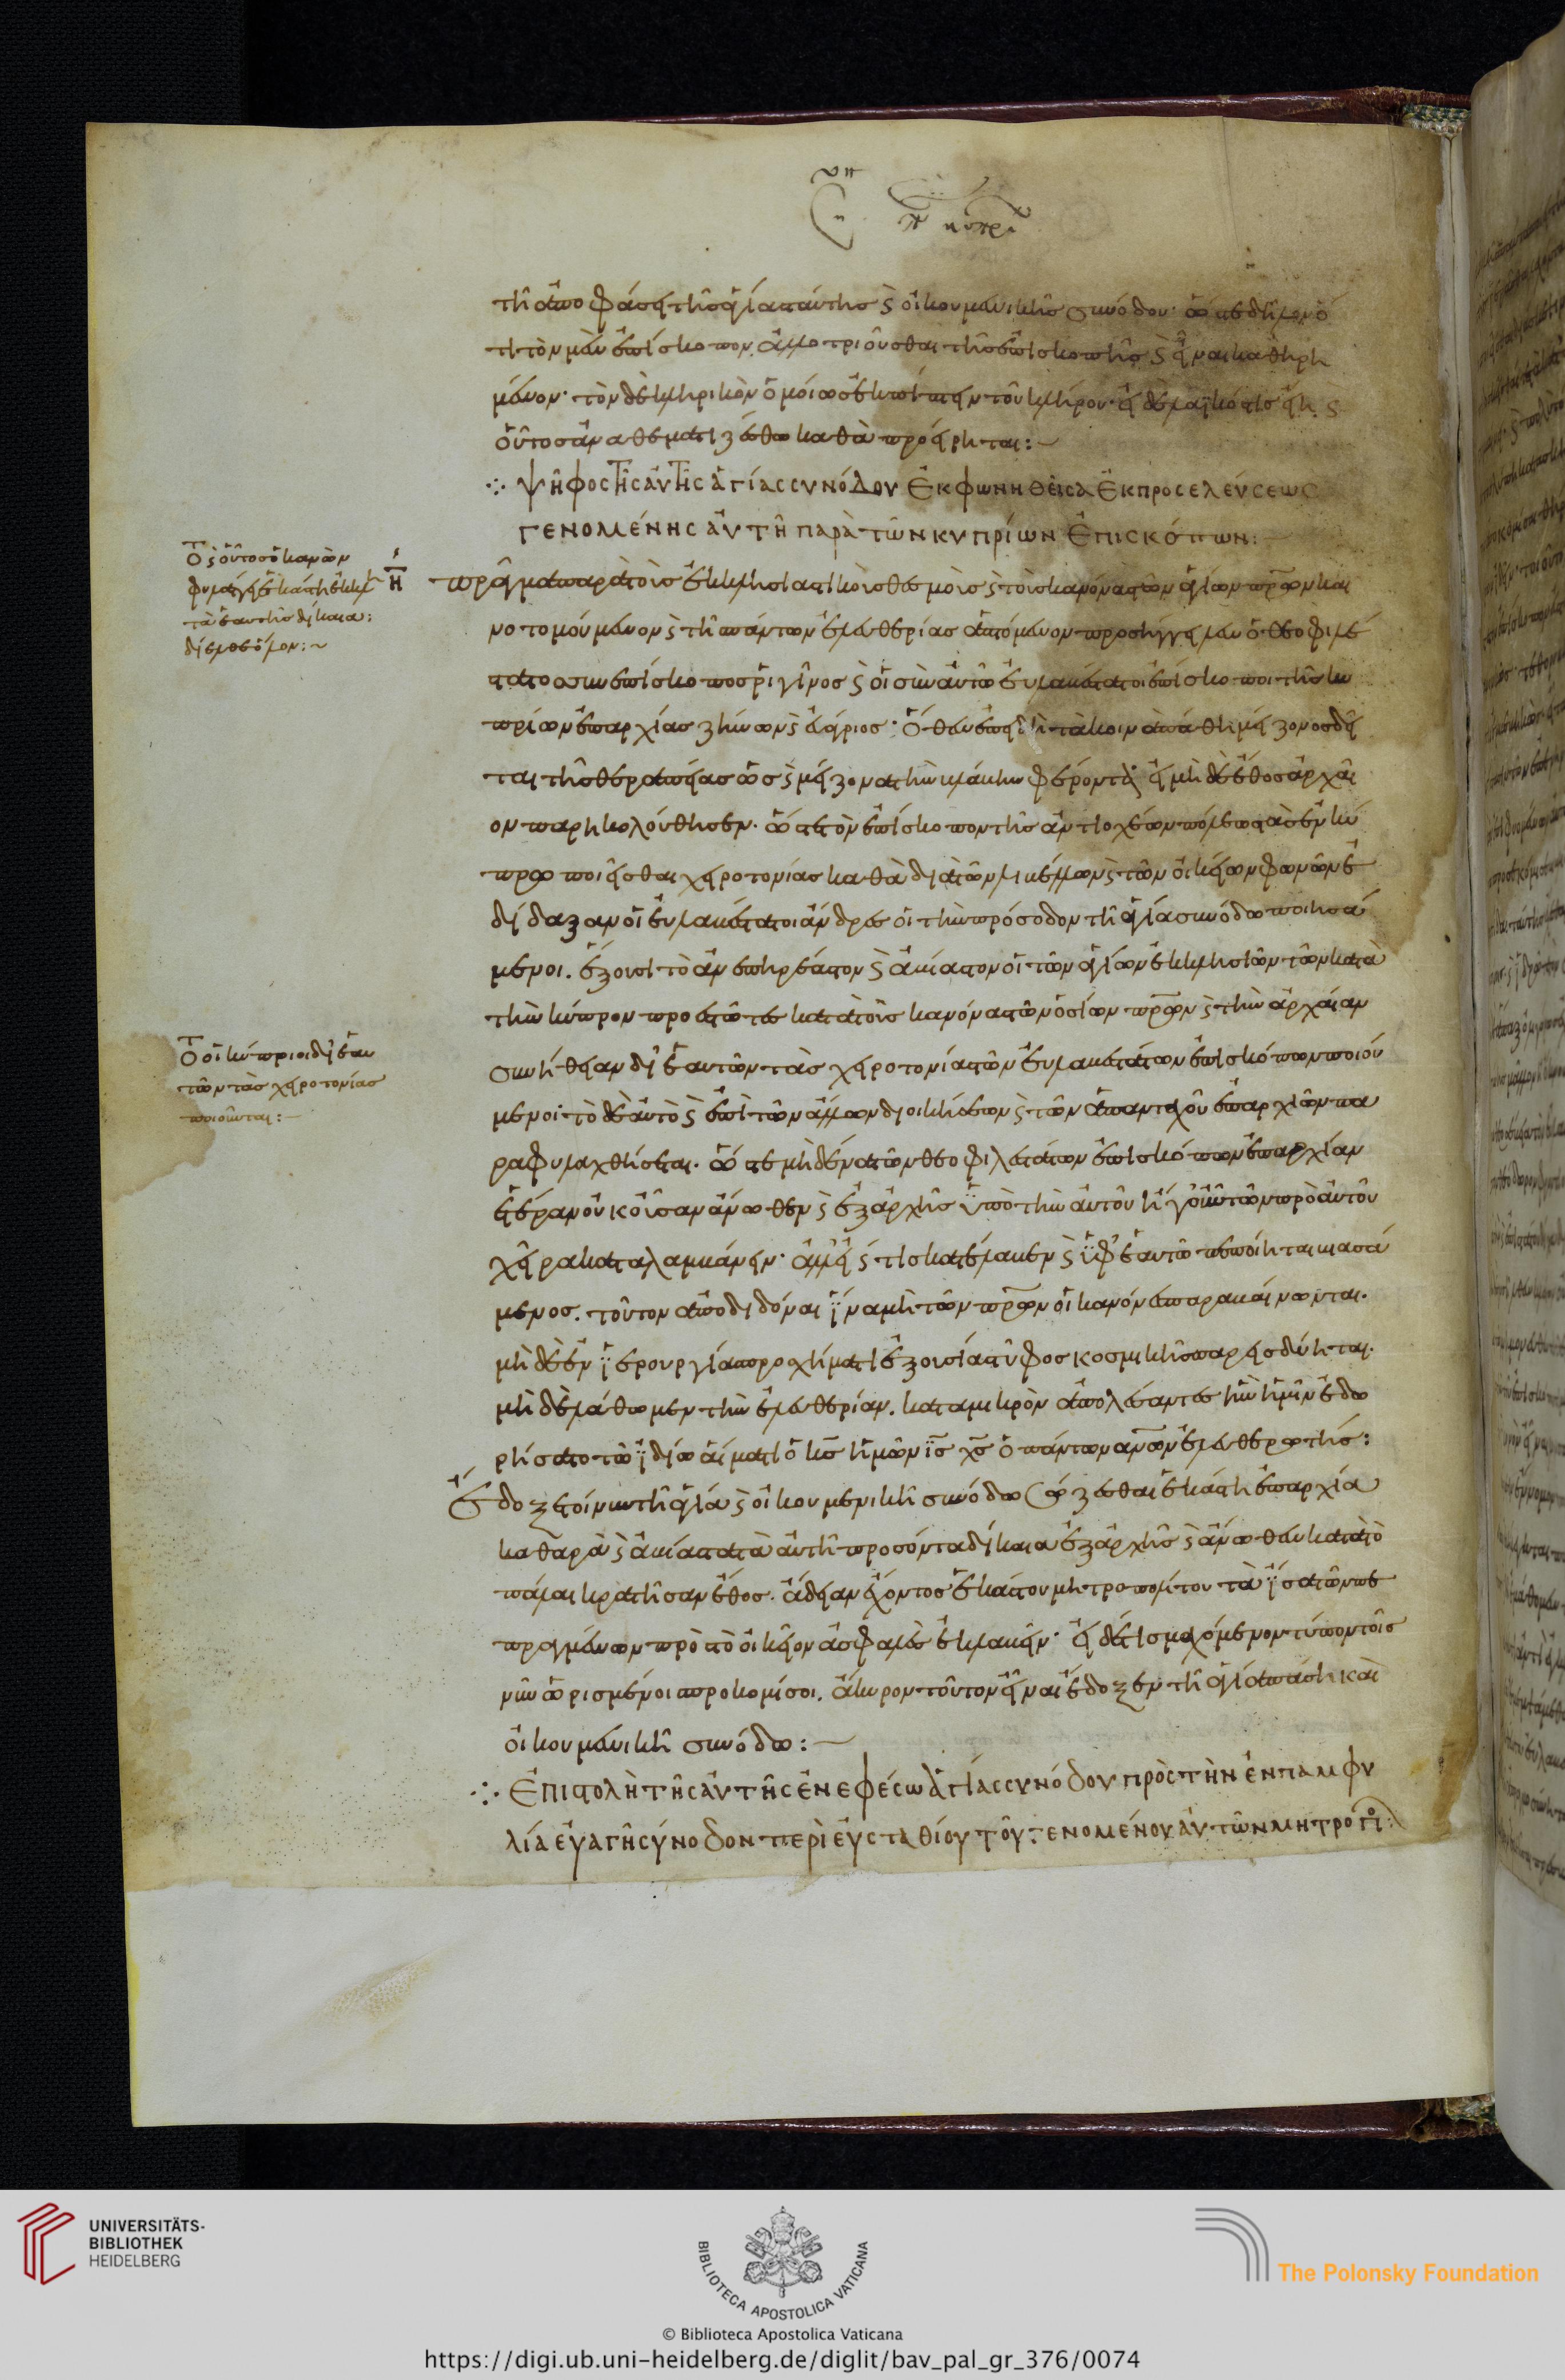 τῇ ἀποφάσει τῆς ἁγίας ταύτης ϛ οἰκουμενικῆς συνόδου· ὥστε δηλονό
τι τὸν μὲν ἐπίσκοπον, ἀλλοτριοῦσθαι τῆς ἐπισκοπῆς ϛ εἶναι καθηρη
μένον· τὸν δὲ κληρικὸν ὁμοίως ἐκπίπτειν τοῦ κλήρου· εἰ δὲ λαϊκός τις εἴη, ϛ
οὗτος ἀναθεματιζέσθω καθὰ προείρηται:
ψῆφος τῆς αὐτῆς ἁγίας συνόδου ἐκφωνηθεῖσα ἐκ προσελεύσεως
γενομένης αὐτῇ παρὰ τῶν κυπρίων ἐπισκόπων:
Ὅτι ϛ οὗτος ὁ κανὼν
τὰ ἑαυτῆς δίκαια:
η πρᾶγμα παρὰ τοὺς ἐκκλησιαστικοὺς θεσμοὺς ϛ τοὺς κανόνας τῶν ἁγίων πρων και
νοτομούμενον ϛ τῆς πάντων ἐλευθερίας ἁπτόμενον προσήγγειλεν ὁ θεοφιλέ
στατος συνεπίσκοπος ῥιγῖνος ϛ οἱ σὺν αὐτῷ εὐλαβέστατοι ἐπίσκοποι τῆς κυ
πρίων ἐπαρχίας ζήνων ϛ εὐάγριος· ὅθεν ἐπειδὴ τὰ κοινὰ πάθη μείζονος δεῖ
ται τῆς θεραπείας ὡς ϛ μείζονα τὴν βλάβην φέροντα, εἰ μηδὲ ἔθος ἀρχαῖ
ον παρηκολούθησεν. ὥστε τὸν ἐπίσκοπον τῆς ἀντιοχέων πόλεως τὰς ἐν κύ
πρῳ ποιεῖσθαι χειροτονίας καθὰ διὰ τῶν λιβέλλων ϛ τῶν οἰκείων φωνῶν ἐ
δίδαξαν οἱ εὐλαβέστατοι ἄνδρες οἱ τὴν πρόσοδον τῇ ἁγίᾳ συνόδῳ ποιησά
μενοι. ἕξουσι τὸ ἀνεπηρέαστον ϛ ἀβίαστον οἱ τῶν ἁγίων ἐκκλησιῶν τῶν κατὰ
τὴν κύπρον προεστῶτες κατὰ τοὺς κανόνας τῶν ὁσίων πρων ϛ τὴν ἀρχαίαν
Ὅτι οἱ κύπριοι δι' ἑαυ
τῶν τὰς χειροτονίας
ποιοῦνται:
συνήθειαν δι' ἑαυτῶν τὰς χειροτονίας τῶν εὐλαβεστάτων ἐπισκόπων ποιού
μενοι· τὸ δὲ αὐτὸ ϛ ἐπὶ τῶν ἄλλων διοικήσεων ϛ τῶν ἁπανταχοῦ ἐπαρχιῶν πα
ραφυλαχθήσεται. ὥστε μηδένα τῶν θεοφιλεστάτων ἐπισκόπων ἐπαρχίαν
ἑτέραν οὐκ οὖσαν ἄνωθεν ϛ ἐξ ἀρχῆς ὑπὸ τὴν αὐτοῦ ἢ γοῦν τῶν πρὸ αὐτοῦ
χεῖρα καταλαμβάνειν· ἀλλ' εἰ ϛ τις κατέλαβεν ϛ ὑφ' ἑαυτῷ πεποίηται βιασά
μενος. τοῦτον ἀποδιδόναι ἵνα μὴ τῶν πρων οἱ κανόνες παραβαίνωνται.
μὴ δὲ ἐν ἱερουργίας προσχήματι ἐξουσίας τῦφος κοσμικῆς παρεισδύηται.
μὴ δὲ λάθωμεν τὴν ἐλευθερίαν. κατα μικρὸν ἀπολέσαντες ἣν ἡμῖν ἐδω
ρήσατο τῷ ἰδίῳ αἵματι ὁ κς ἡμῶν ις χς ὁ πάντων ανων ἐλευθερωτής:
Ἔδοξε τοίνυν τῇ ἁγίᾳ ϛ οἰκουμενικῇ συνόδῳ σῴζεσθαι ἑκάστῃ ἐπαρχίᾳ
καθαρὰ ϛ ἀβίαστα τὰ αὐτῇ προσόντα δίκαια ἐξ ἀρχῆς ϛ ἄνωθεν κατὰ τὸ
πάλαι κρατῆσαν ἔθος. ἄδειαν ἔχοντος ἑκάστου μητροπολίτου τὰ ἴσα τῶν πε
πραγμένων πρὸς τὸ οἰκεῖον ἀσφαλὲς ἐκλαβεῖν· εἰ δέ τις μαχόμενον τύπον τοῖς
νῦν ὡρισμένοις προκομίσοι. ἄκυρον τοῦτον εἶναι ἔδοξεν τῇ ἁγίᾳ πάσῃ καὶ
οἰκουμενικῇ συνόδῳ:
ἐπιστολὴ τῆς αὐτῆς ἐν ἐφέσῳ ἁγίας συνόδου πρὸς τὴν ἐν παμφυ
λίᾳ εὐαγῆ σύνοδον περὶ εὐσταθίου τοῦ γενομένου αὐτῶν μητροπολ:
UNIVERSITÄTS-
BIBLIOTHEK
HEIDELBERG
BIBLIOTECA APOSTOLICA VATICANA
The Polonsky Foundation
© Biblioteca Apostolica Vaticana
https://digi.ub.uni-heidelberg.de/diglit/bav_pal_gr_376/0074